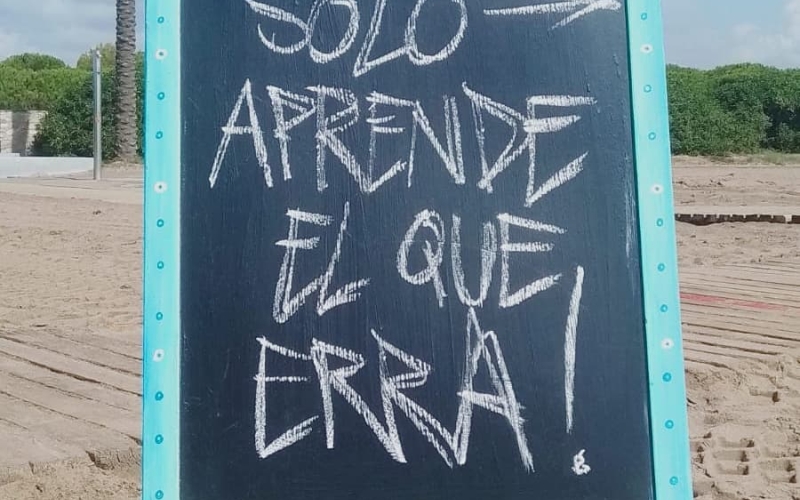 SOLO →
APRENDE
EL QUE
ERRA!